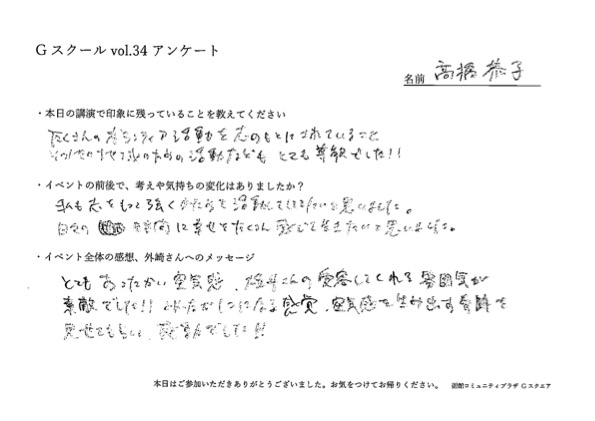 Gスクール vol.34 アンケート
名前 高橋 恭子
・本日の講演で印象に残っていることを教えてください
たくさんのボランティア活動を志のもとにされていること
活動なども とても尊敬でした!!
・イベントの前後で、考えや気持ちの変化はありましたか?
私も志をもって強く 活動していきたいと思いました。
自分の 時間に幸せをたくさん感じて生きたいと思いました。
・イベント全体の感想、外崎さんへのメッセージ
とてもあったかい空気感、 さんの受容してくれる雰囲気が
素敵でした!! になる感覚、空気感を生み出す奇跡を
見せてもらい、 でした!!
本日はご参加いただきありがとうございました。お気をつけてお帰りください。 函館コミュニティプラザ Gスクエア